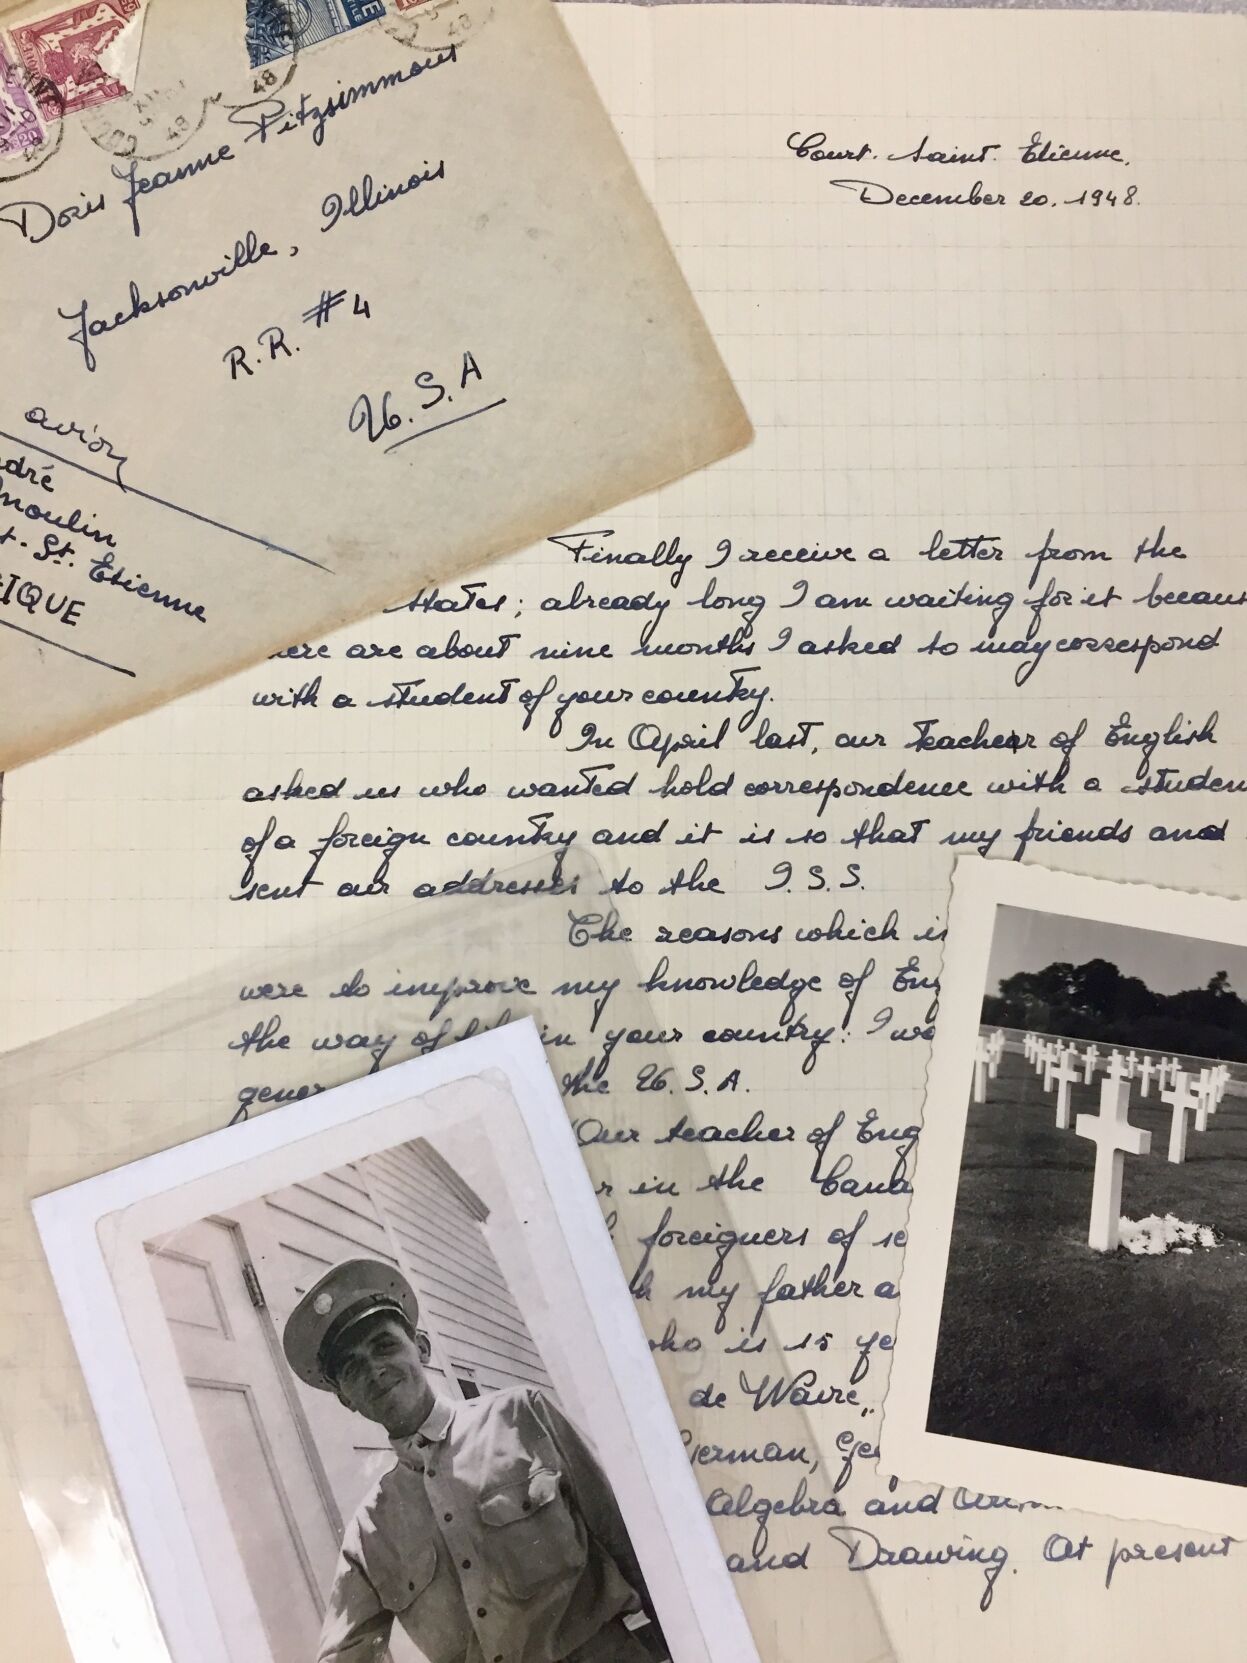 Doris Jeanne Fitzsimmons
Jacksonville, Illinois
R.R. #4
U.S.A
avion
dré
moulin
t. St. Etienne
IQUE
48
48
48
Court. Saint. Etienne.
December 20. 1948.
Finally I receive a letter from the
states; already long I am waiting for it becaus
ere are about nine months I asked to may correspond
with a student of your country.
In April last, our teacher of English
asked us who wanted hold correspondence with a studen
of a foreign country and it is so that my friends and
sent our addresses to the I.S.S.
The reasons which
were to improve my knowledge of Eng
the way of in your country: I wo
gener the U.S.A.
Our teacher of Eng
r in the Cana
foreigners of se
h my father a
ho is 15 ye
de Wavre„
erman, Ge
Algebra and
and Drawing. At present